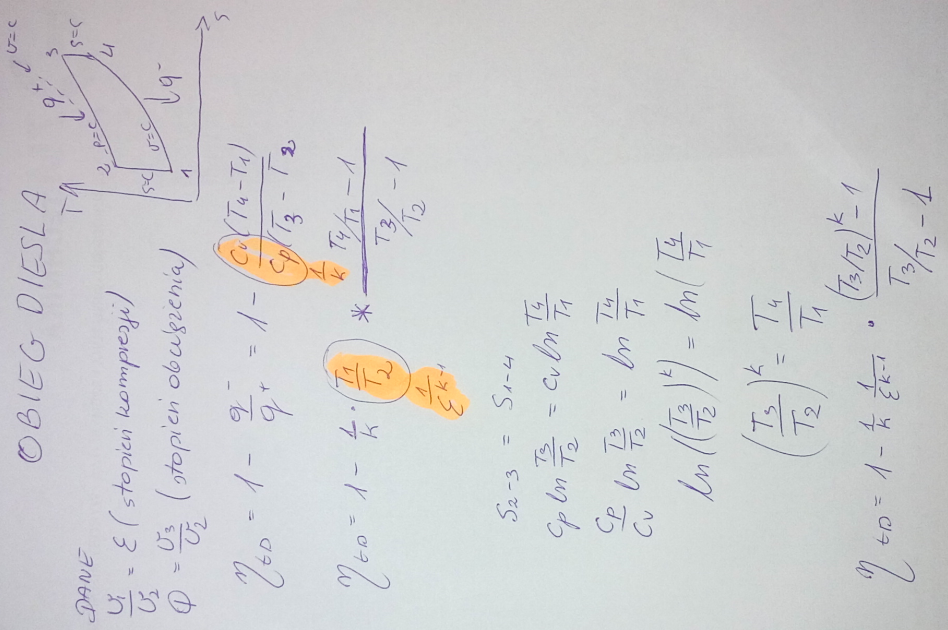 OBIEG DIESLA
T
S
1
2
3
4
s=c
p=c
q+
v=c
s=c
v=c
q-
DANE
v₁/v₂ = ε (stopień kompresji)
φ = v₃/v₂ (stopień obciążenia)
η_tD = 1 - q-/q+ = 1 - cv(T₄-T₁)/cp(T₃-T₂
1/k
η_tD = 1 - 1/k · T₁/T₂ * (T₄/T₁ - 1)/(T₃/T₂ - 1)
1/ε^(k-1)
S₂₋₃ = S₁₋₄
cp ln T₃/T₂ = cv ln T₄/T₁
cp/cv ln T₃/T₂ = ln T₄/T₁
ln((T₃/T₂)^k) = ln(T₄/T₁
(T₃/T₂)^k = T₄/T₁
η_tD = 1 - 1/k 1/ε^(k-1) · ((T₃/T₂)^k - 1)/(T₃/T₂ - 1)